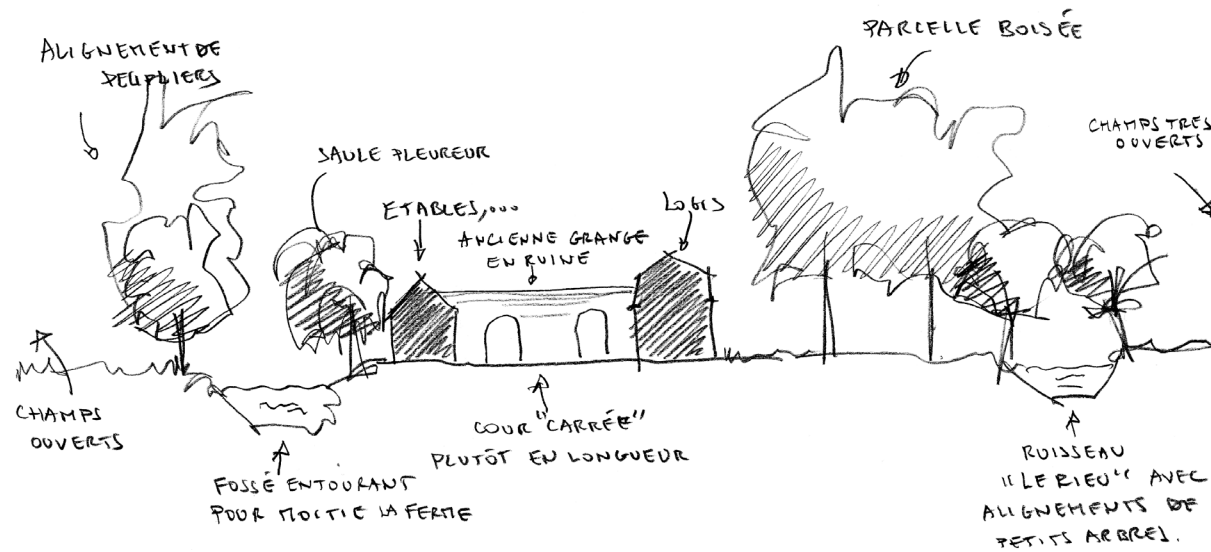 ALIGNEMENT DE
PEUPLIERS
SAULE PLEUREUR
ETABLES,...
ANCIENNE GRANGE
EN RUINE
LOGIS
PARCELLE BOISÉE
CHAMPS TRES
OUVERTS
CHAMPS
OUVERTS
FOSSÉ ENTOURANT
POUR MOITIE LA FERME
COUR "CARRÉE"
PLUTÔT EN LONGUEUR
RUISSEAU
"LE RIEU" AVEC
ALIGNEMENTS DE
PETITS ARBRES.